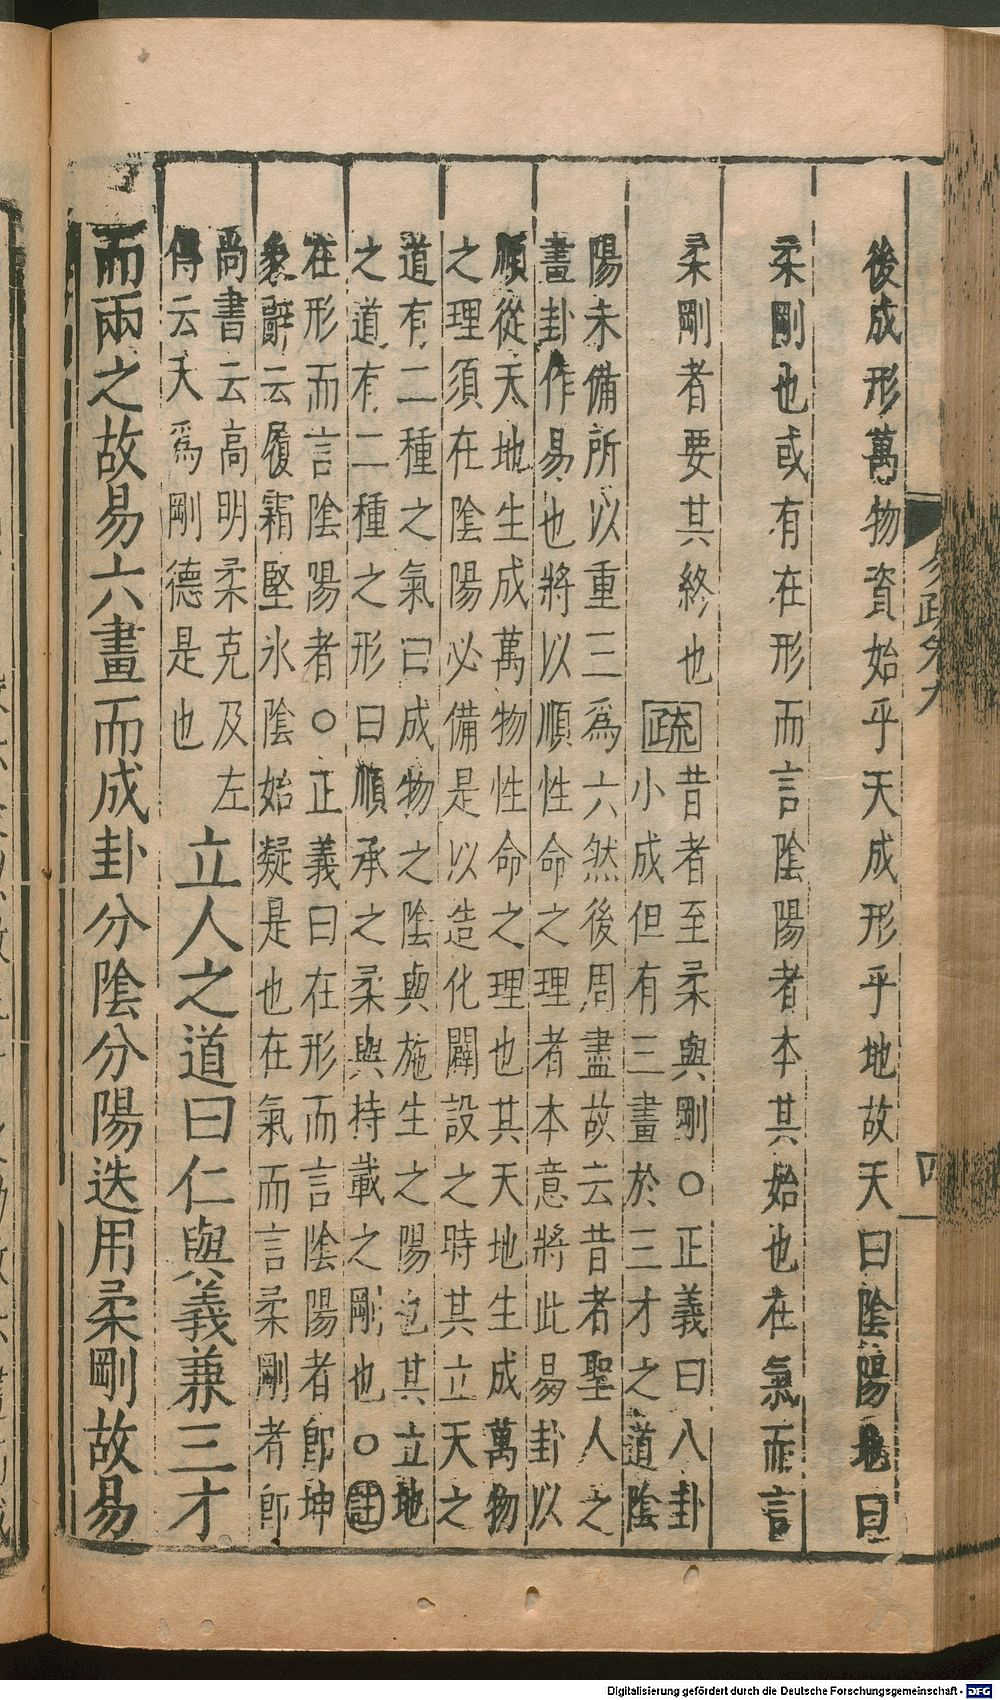 後成形萬物資始乎天成形乎地故天曰陰陽地曰
柔剛也或有在形而言陰陽者本其始也在氣而言
柔剛者要其終也
疏
昔者至柔與剛○正義曰八卦
小成但有三畫於三才之道陰
陽未備所以重三爲六然後周盡故云昔者聖人之
畫卦作易也將以順性命之理者本意將此易卦以
順從天地生成萬物性命之理也其天地生成萬物
之理須在陰陽必備是以造化闢設之時其立天之
道有二種之氣曰成物之陰與施生之陽也其立地
之道有二種之形曰順承之柔與持載之剛也○註
在形而言陰陽者○正義曰在形而言陰陽者卽坤
象辭云履霜堅氷陰始凝是也在氣而言柔剛者卽
尚書云高明柔克及左
傳云天爲剛德是也
立人之道曰仁與義兼三才
而兩之故易六畫而成卦分陰分陽迭用柔剛故易
易疏卷九
四
Digitalisierung gefördert durch die Deutsche Forschungsgemeinschaft - DFG